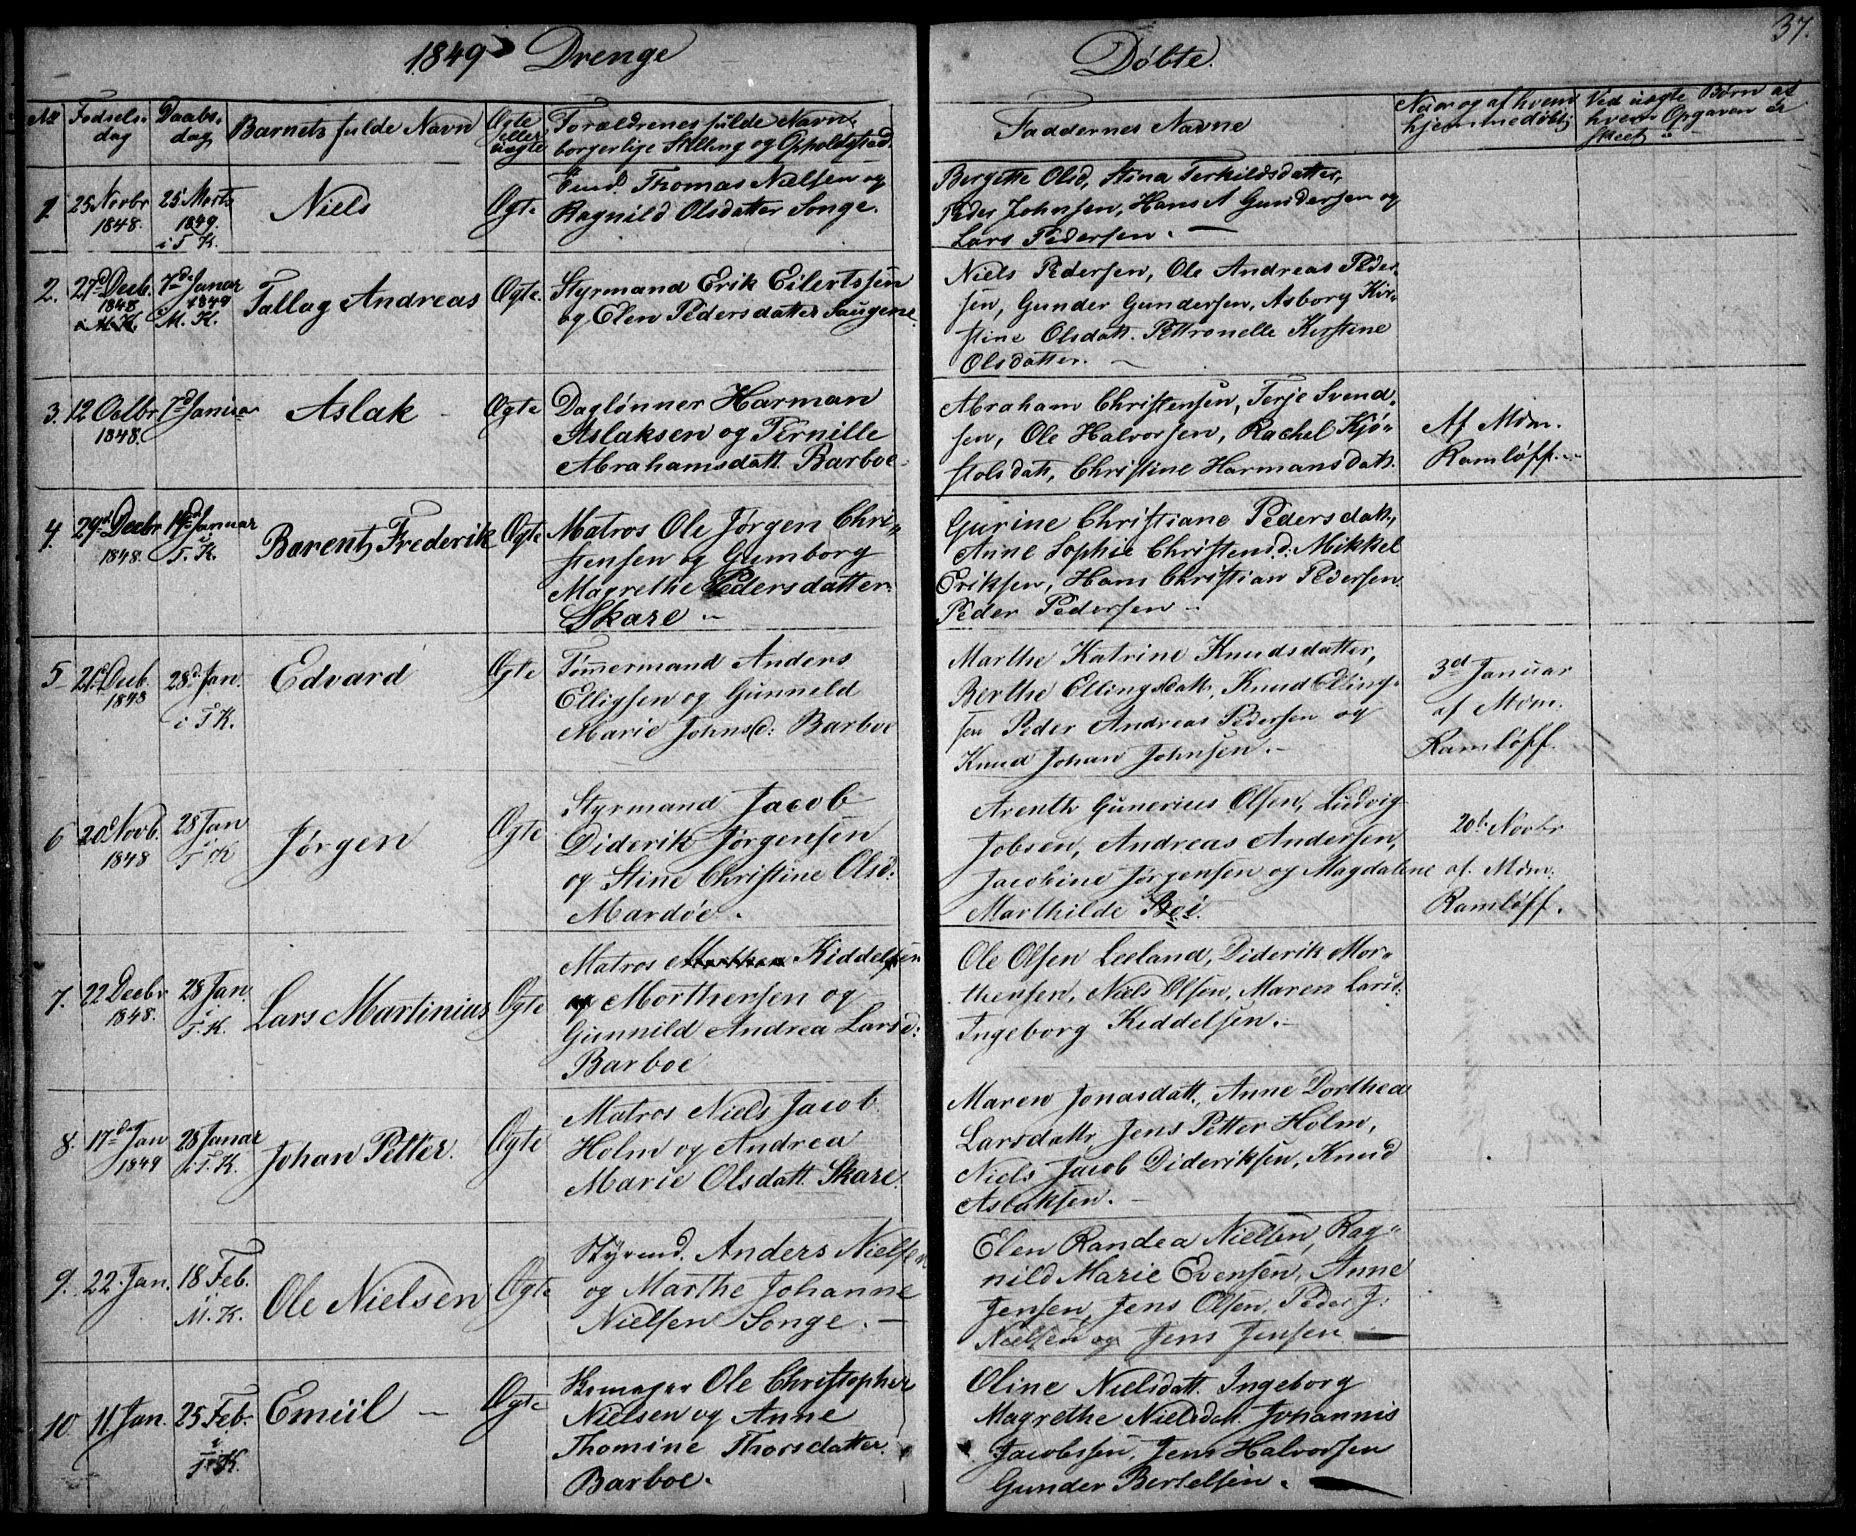 37.
1849 Drenge Døbte.
No Fødsels- dag Daabs- dag Barnets fulde Navn Ægte eller uægte Forældrenes fulde Navn, borgerlige Stilling og Opholdsted. Faddernes Navne Naar og af hvem hjemmedøbt Ved uægte Børn af hvem Opgaven er skeet
1. 25 Novbr 25 Marts Niels Ægte Thomas Nielsen og Bergette Olsd, Stina Terkildsdatter,
1848. 1849. Ragnild Olsdatter Songe. Peder Johnsen, Hans A Gundersen og
i T. K. Lars Pedersen.
2. 27d Decb. 7d Januar Tallag Andreas Ægte. Styrmand Erik Eilertssen Niels Pedersen, Ole Andreas Peder-
1848 1849 og Elen Pedersdatter Saugene. sen, Gunder Gundersen, Asborg Kir-
i M. K. M. K. stine Olsdatt. Pettronelle Kirstine
Olsdatter.
3. 12 Octbr 7d Januar Aslak Ægte Daglønner Harman Abraham Christensen, Terje Svend-
1848. Aslaksen og Pernille sen, Ole Halvorsen, Rachel Kjø- Af Mdm.
Abrahamsdatt. Barboe. stolsdatt, Christine Harmansdatt. Ramløff.
4. 29d Decbr 14d Januar Barent Frederik Ægte Matros Ole Jørgen Chri- Gurine Christiane Pedersdatt.,
1848. i T. K. stensen og Gumborg Anne Sophie Christensd: Mikkel
Magrethe Pedersdatter Eriksen, Hans Christian Pedersen
Skare Peder Pedersen
5 21d Decb. 28d Jan. Edvard Ægte Timmermand Anders Marthe Katrine Knudsdatter, 3d Januar
1848 i T K. Elligsen og Gunneld Berthe Ellingsdatt, Knud Elling- af Mdm.
Marie Johnsd: Barboe sen Peder Andreas Pedersen og Ramløff.
Knud Johan Johnsen.
6 20d Novb. 28 Jan Jørgen Ægte Styrmand Jacob Arenth Gunerius Olsen, Ludvig 20d Novbr
1848 i T. K Diderik Jørgensen Jobsen, Andreas Andersen, af Mdm.
og Stine Christine Olsd: Jacobine Jørgensen og Magdalene Ramløff.
Mardøe. Marthilde Boi.
7. 22 Decbr 28 Jan Lars Martinius Ægte Matros Kiddelsen Ole Olsen Leeland, Diderik Mor-
1848. i T. K. Morthensen og thensen, Niels Olsen, Maren Larsd:
Gunnild Andrea Larsd: Ingeborg Kiddelsen.
Barboe
8. 17d Jan 28 Januar Johan Petter. Ægte Matros Niels Jacob Maren Jonasdatt., Anne Dorthea
1849 i T. K. Holm og Andrea Larsdatt, Jens Petter Holm,
Marie Olsdatt. Skare. Niels Jacob Dideriksen, Knud
Aslaksen.
9. 22. Jan. 18 Feb. Ole Nielsen Ægte Anders Nielsen Elen Randea Nielsen, Rag-
i M. K. og Marthe Johanne nild Marie Evensen, Anne
Nielsen Songe. Jensen, Jens Olsen, Peder J:
Nielsen og Jens Jensen
10 11 Jan. 25 Feb. Emiil Ægte Skomager Ole Christopher Oline Nielsdatt. Ingeborg
i T. K. Nielsen og Anne Magrethe Nielsdatt. Johannis
Thomine Thorsdatter. Jacobssen, Jens Halvorsen
Barboe. Gunder Bertelsen.